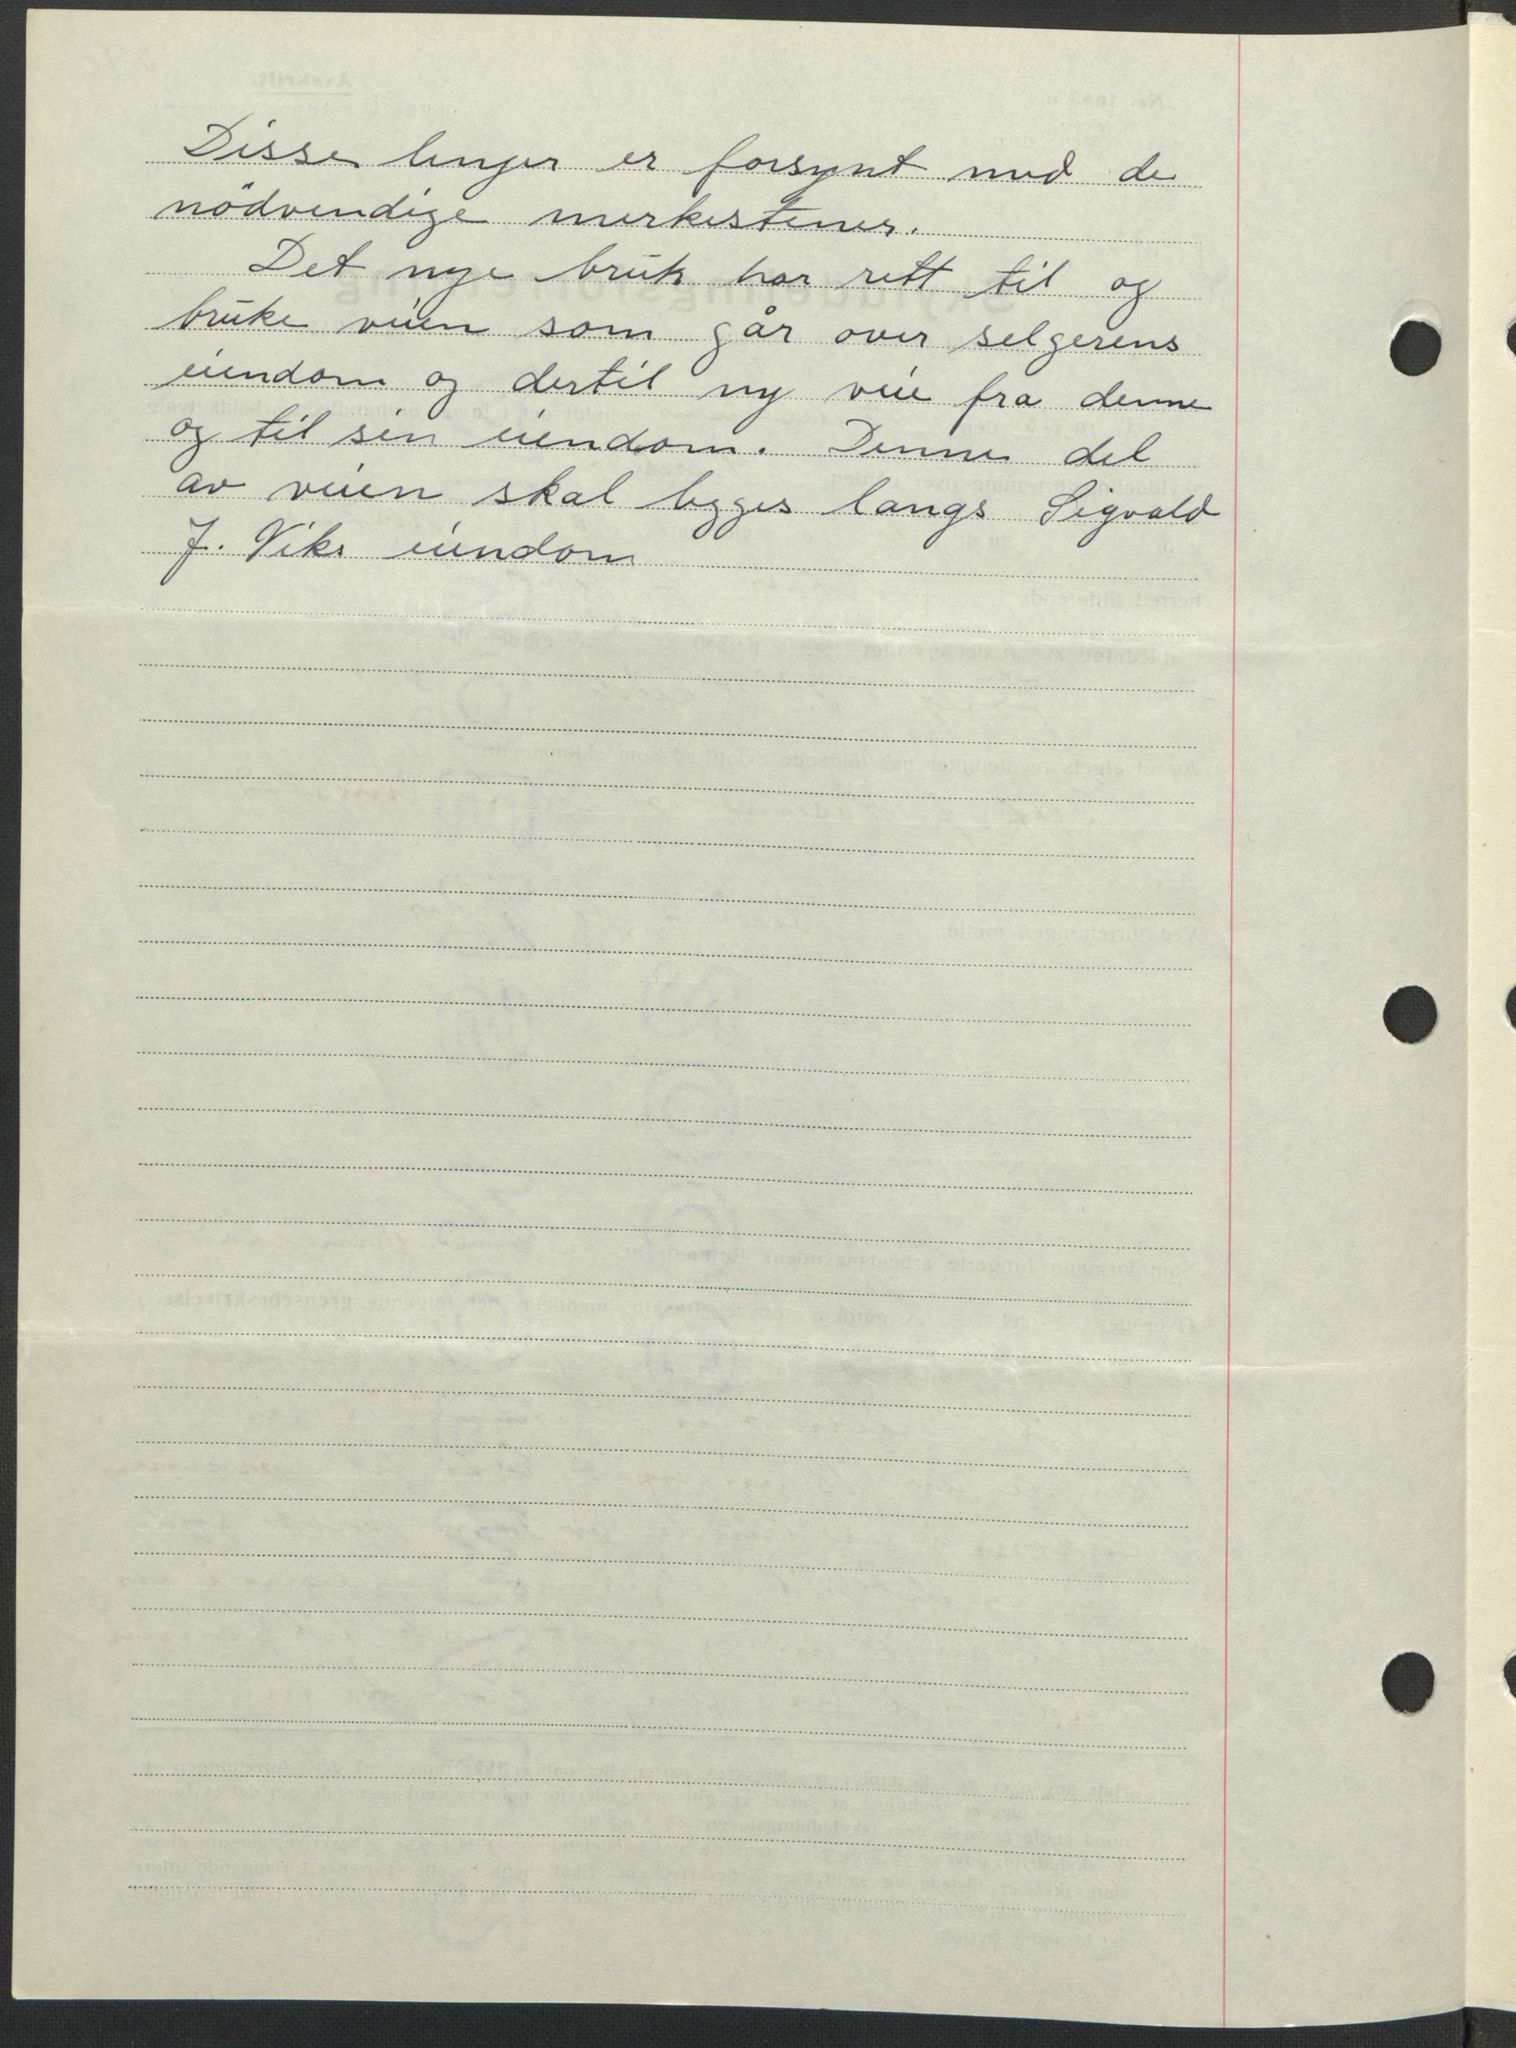 Disse linjer er forsynt med de
nödvendige merkestener.
Det nye bruk har rett til og
bruke veien som går over selgerens
eiendom og dertil ny veie fra denne
og til sin eiendom. Denne del
av veien skal bygges langs Sigvald
J. Viks eiendom